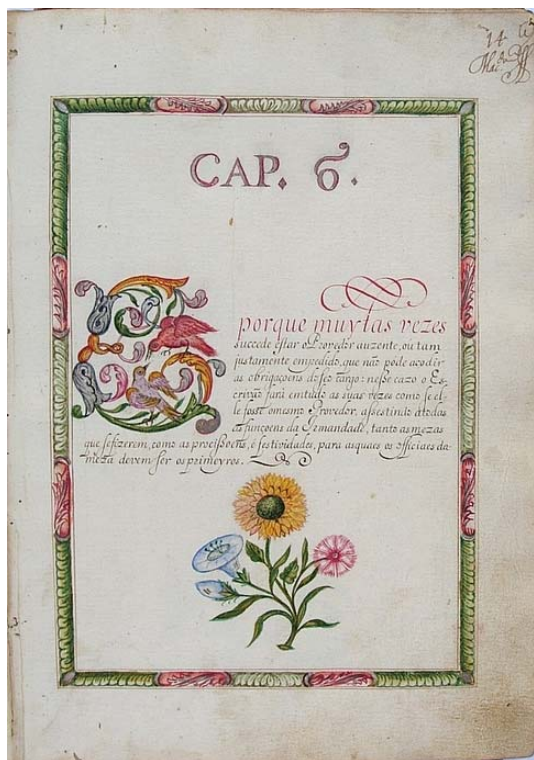 14
CAP. 6.
E porque muytas vezes
succede estar o Provedor auzente, ou tam
justamente empedido, que não póde acodir
as obrigaçoens do seo cargo: nesse cazo o Es-
crivão fará em tudo as suas vezes como se el-
le fosse o mesmo Provedor, assestindo a todas
as funçoens da Irmandade, tanto as mezas
que se fizerem, como as procissoens, e festividades, para as quaes os officiaes da
meza devem ser os primeyros.